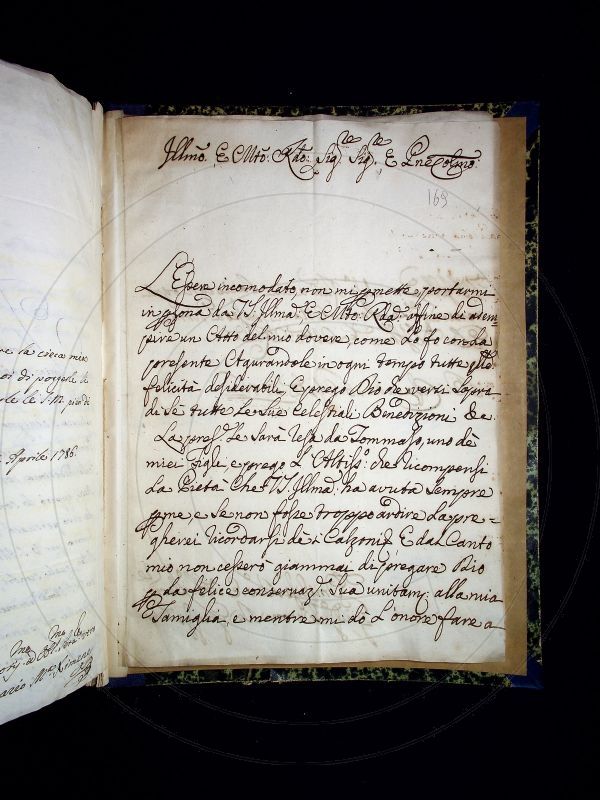 Illmo: E Mto: Rdo: Sigre Sigre, E Pne Colmo:
169
L'Essere incomodato, non mi pmette portarmi
in psona da VS. Illma: E Mto: Rda: affine di adem
pire un Atto del mio dovere, come Lo fo con la
presente Augurandole in ogni tempo tutte
felicità desiderabili, E prego Dio che versi sopra
di Se tutte Le Sue Celestiali Benedizioni &c.
La prest. Le Sarà resa da Tommaso, uno de
miei Figli, e prego L'Altiss:o che ricompensi
La Pietà Che VS. Illma: ha avuta Sempre
pme, e se non fosse troppo ardire La pre=
gherei ricordarsi de i Calzoni, E dal Canto
mio non cesserò giammai di pregare Dio
p la felice conservaz: Sua unitamte: alla mia
Famiglia, e mentre mi dò L'onore fare a
la cieca mia
di porgerle
Aprile 1786.